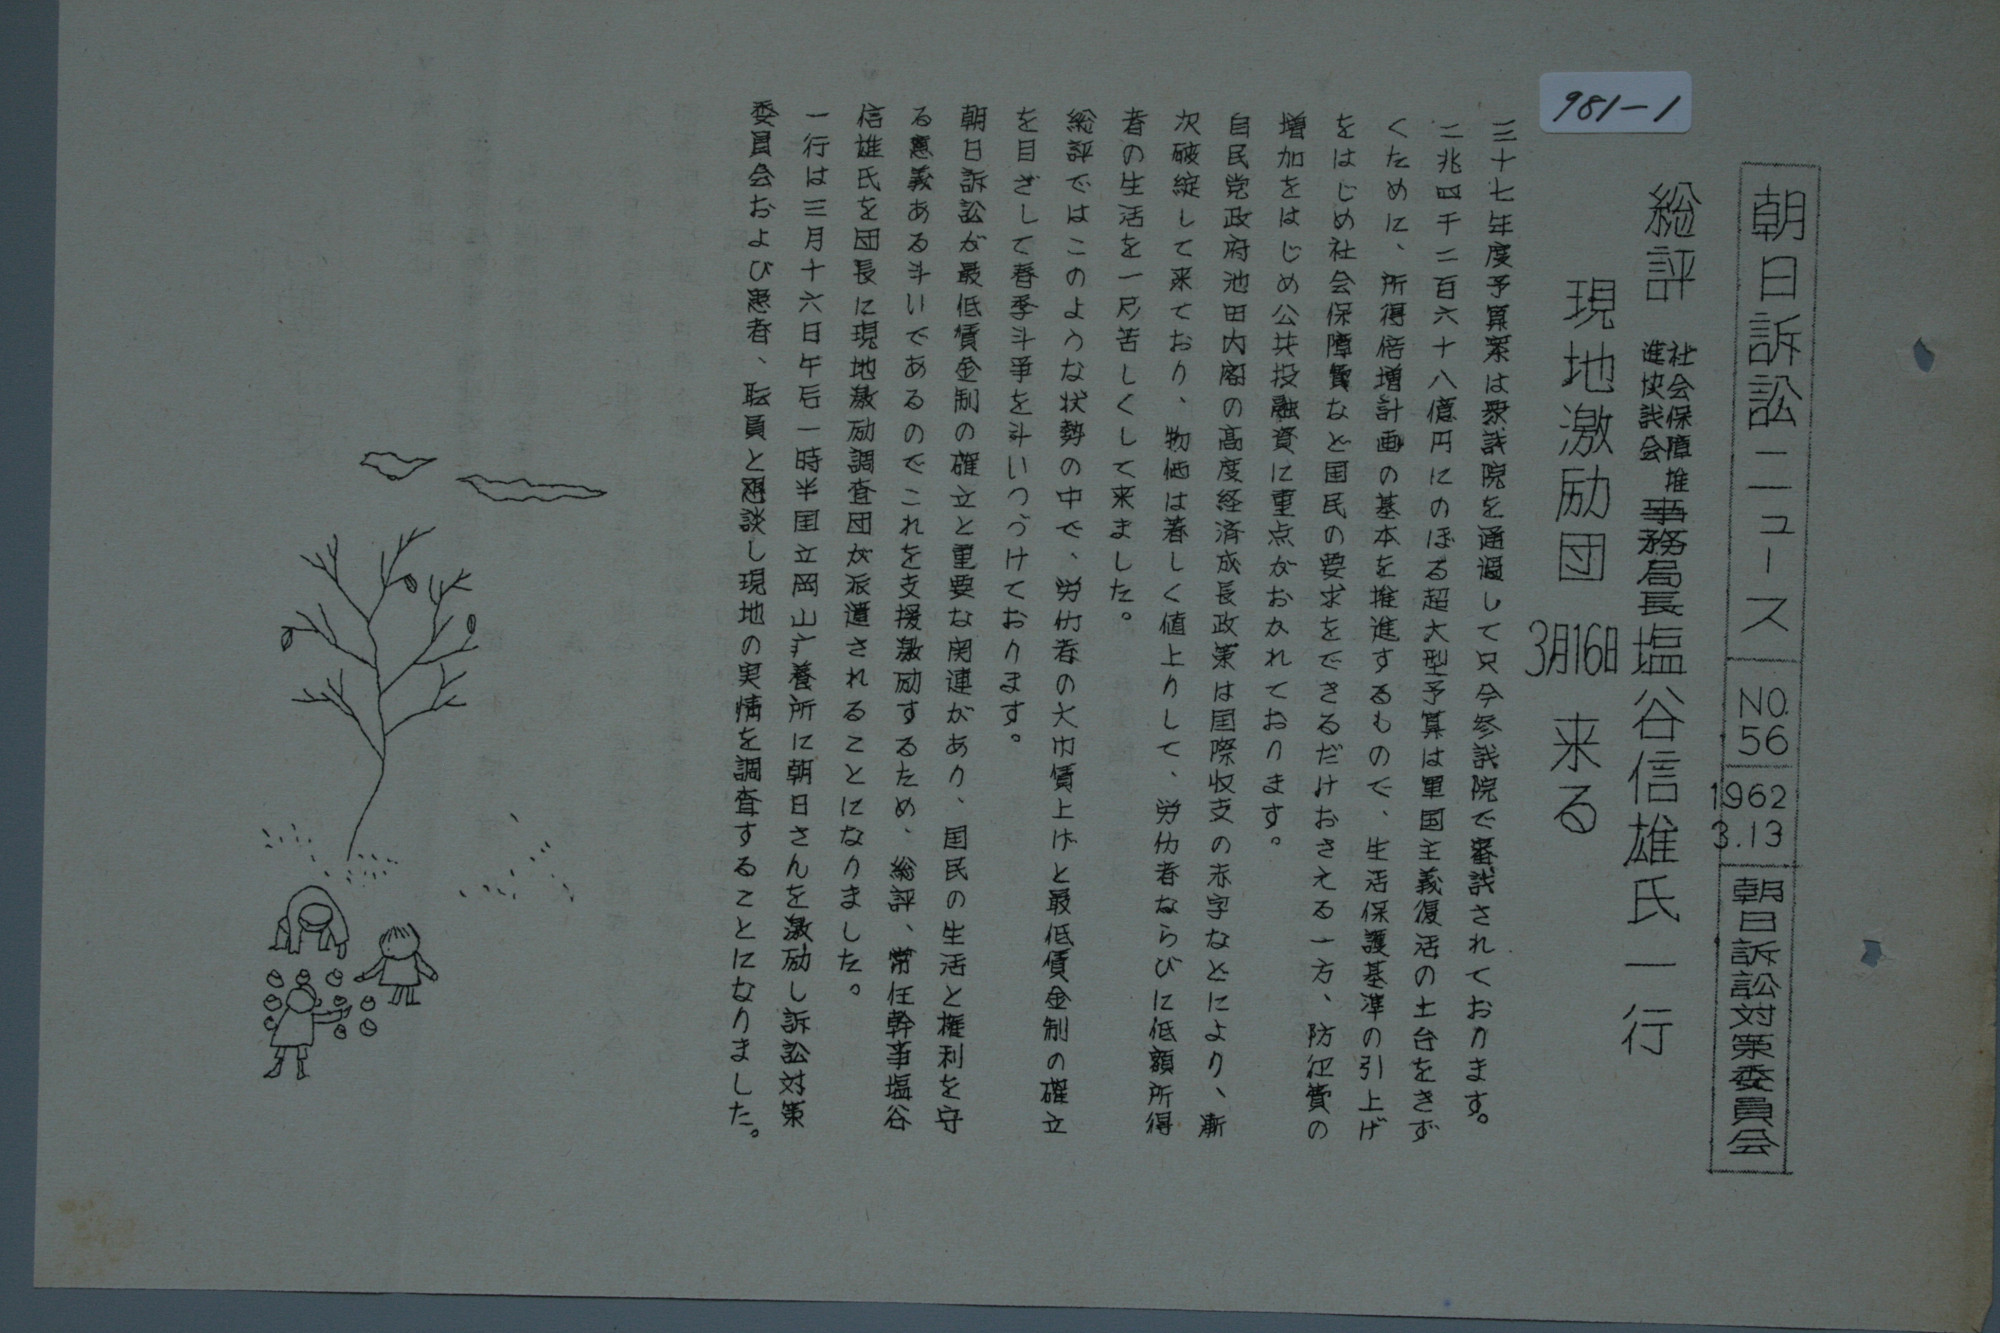 981-1
朝日訴訟ニュース NO.56 1962 3.13 朝日訴訟対策委員会
総評 社会保障推進快談会 事務局長 塩谷信雄氏一行
現地激励団 3月16日 来る
三十七年度予算案は衆議院を通過して只今参議院で審議されております。
二兆四千二百六十八億円にのぼる超大型予算は軍国主義復活の土台をきず
くために、所得倍増計画の基本を推進するもので、生活保護基準の引上げ
をはじめ社会保障費など国民の要求をできるだけおさえる一方、防衛費の
増加をはじめ公共投融資に重点がおかれております。
自民党政府池田内閣の高度経済成長政策は国際収支の赤字などにより、漸
次破綻して来ており、物価は著しく値上りして、労仂者ならびに低額所得
者の生活を一層苦しくして来ました。
総評ではこのような状勢の中で、労仂者の大巾賃上げと最低賃金制の確立
を目ざして春季斗争を斗いつづけております。
朝日訴訟が最低賃金制の確立と重要な関連があり、国民の生活と権利を守
る意義ある斗いであるのでこれを支援激励するため、総評、常任幹事塩谷
信雄氏を団長に現地激励調査団が派遣されることになりました。
一行は三月十六日午后一時半国立岡山療養所に朝日さんを激励し訴訟対策
委員会および患者、職員と懇談し現地の実情を調査することになりました。